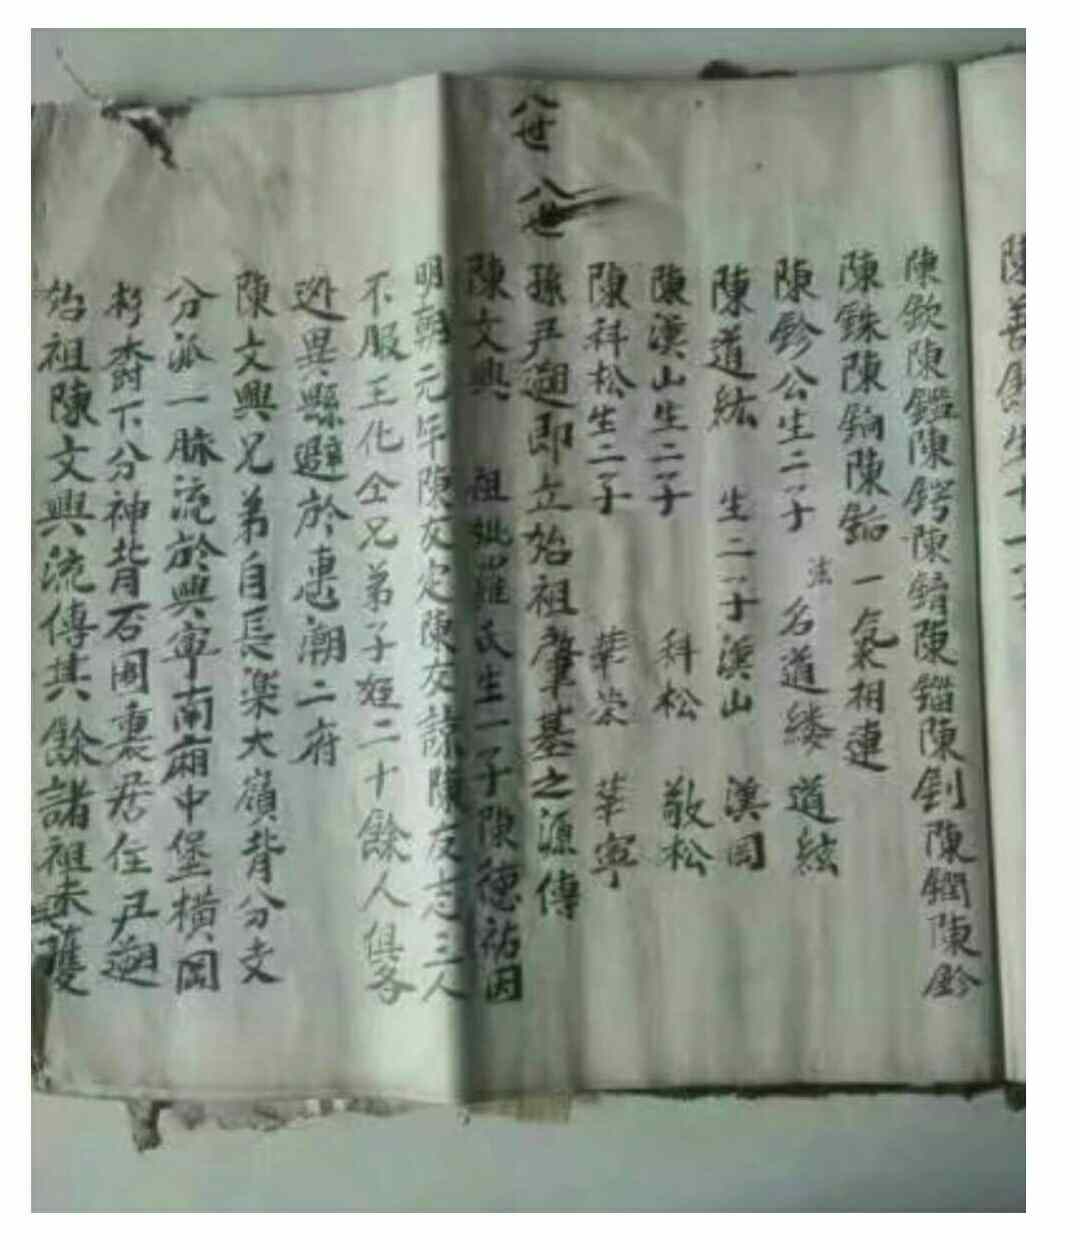 陳善
陳欽陳鑑陳鍔陳錆陳鎦陳釗陳鐗陳鈐
陳銖陳鈉陳 一氣相連
陳鈐公生二子 法名道縷 道絃
陳道紘 生二子漢山 漢岡
陳漢山生二子 科松 敬松
陳科松生二子 華荣 華寧
八世 八世 孫尹遡即立始祖肇基之源傳
陳文興 祖妣羅氏生一子陳德祐因
明朝元年陳友定陳友諒陳友志三人
不服王化仝兄弟子姪二十餘人俱各
逃異縣避於惠潮二府
陳文興兄弟自長楽大嶺背分支
分派一脉流於興寧南廂中堡橫岡
下分神背石圍裏居住尹遡
始祖陳文興流傳其餘諸祖未獲